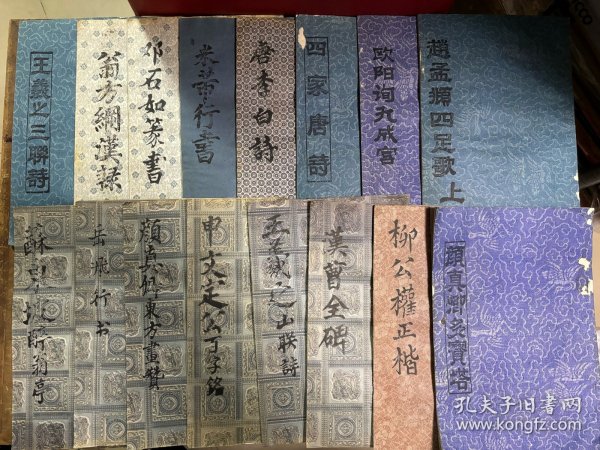 王羲之三聯詩
翁方綱漢隸
邓石如篆書
米芾行書
唐李白詩
四家唐詩
欧阳询九成宫
趙孟頫四足歌 上
蘇東坡醉翁亭
岳飛行书
顏真卿東方畫贊
申文定公丁字銘
王羲之山联詩
漢曹全碑
柳公權正楷
顏真卿多寶塔
孔夫子旧书网
www.kongfz.com